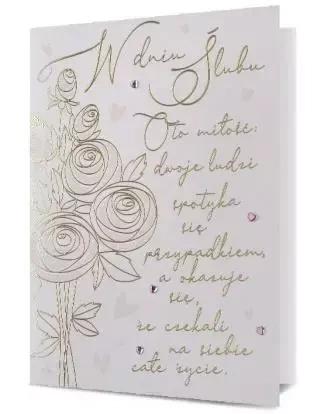 W dniu Ślubu
Oto miłość:
dwoje ludzi
spotyka
się
przypadkiem,
a okazuje
się,
że czekali
na siebie
całe życie.